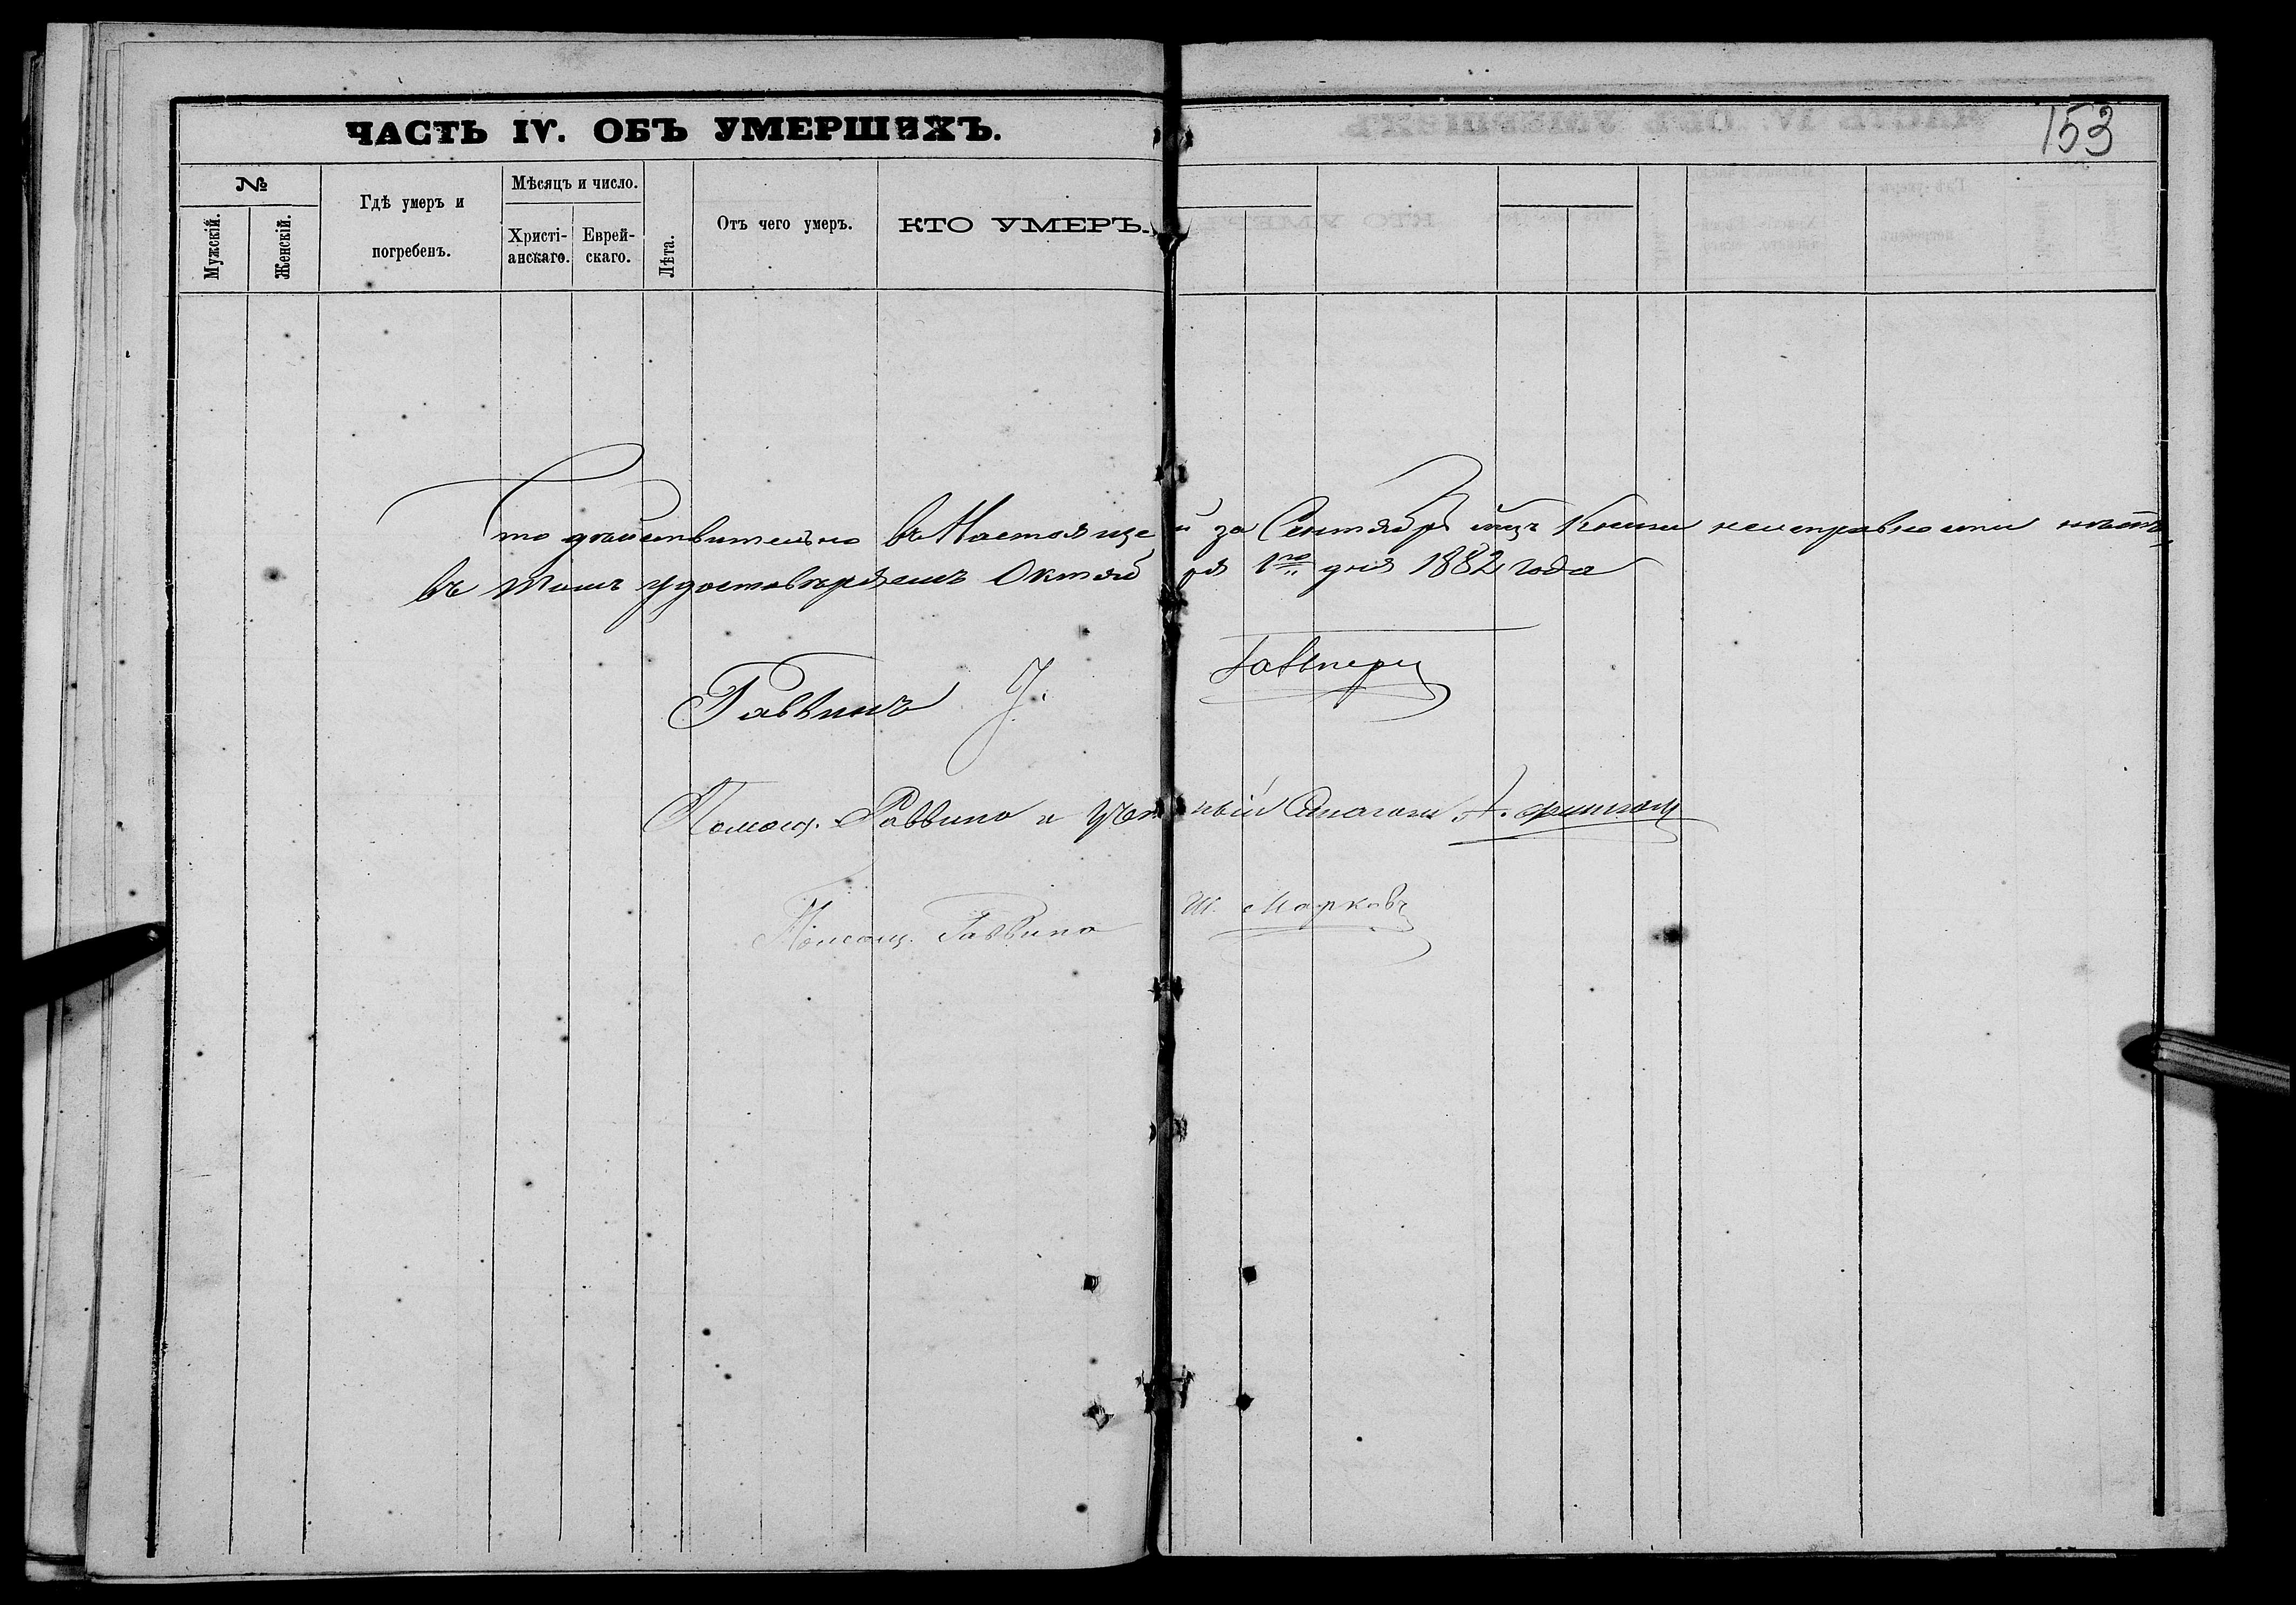 ЧАСТЬ IV. ОБЪ УМЕРШИХЪ.
153
№
Мужскій.
Женскій.
Гдѣ умеръ и
погребенъ.
Мѣсяцъ и число.
Христі-
анскаго.
Еврей-
скаго.
Лѣта.
Отъ чего умеръ.
КТО УМЕРЪ.
Что дѣйствительно въ Настояще й за Сентябрь мцъ Книги неисправности нѣтъ,
въ томъ удостовѣряемъ Октяб ря 1го дня 1882 года
Раввинъ
Помощ. Раввина и
Помощ. Раввина Ш. Марковъ